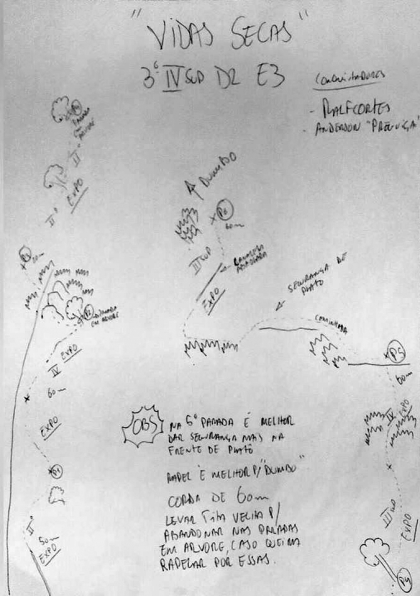 "VIDAS SECAS"
3º IV SUP D2 E3
CONQUISTADORES
- RALF CORTES
- ANDERSON "PREGUIÇA"
DUMBO
60m
III SUP
EXPO
SEGURANÇA DE
PLATO
CAMINHADA
P5
60m
IV
EXPO
III SUP
EXPO
II
EXPO
II
IV EXPO
60m
EXPO
II
50m
EXPO
OBS
NA 5º PARADA É MELHOR
DAR SEGURANÇA MAIS NA
FRENTE DE PLATO
RAPEL É MELHOR P/ "DUMBO"
CORDA DE 60m
LEVAR FITA VELHA P/
ABANDONAR NAS PARADAS
EM ARVORE, CASO QUEIRA
RAPELAR POR ESSAS.